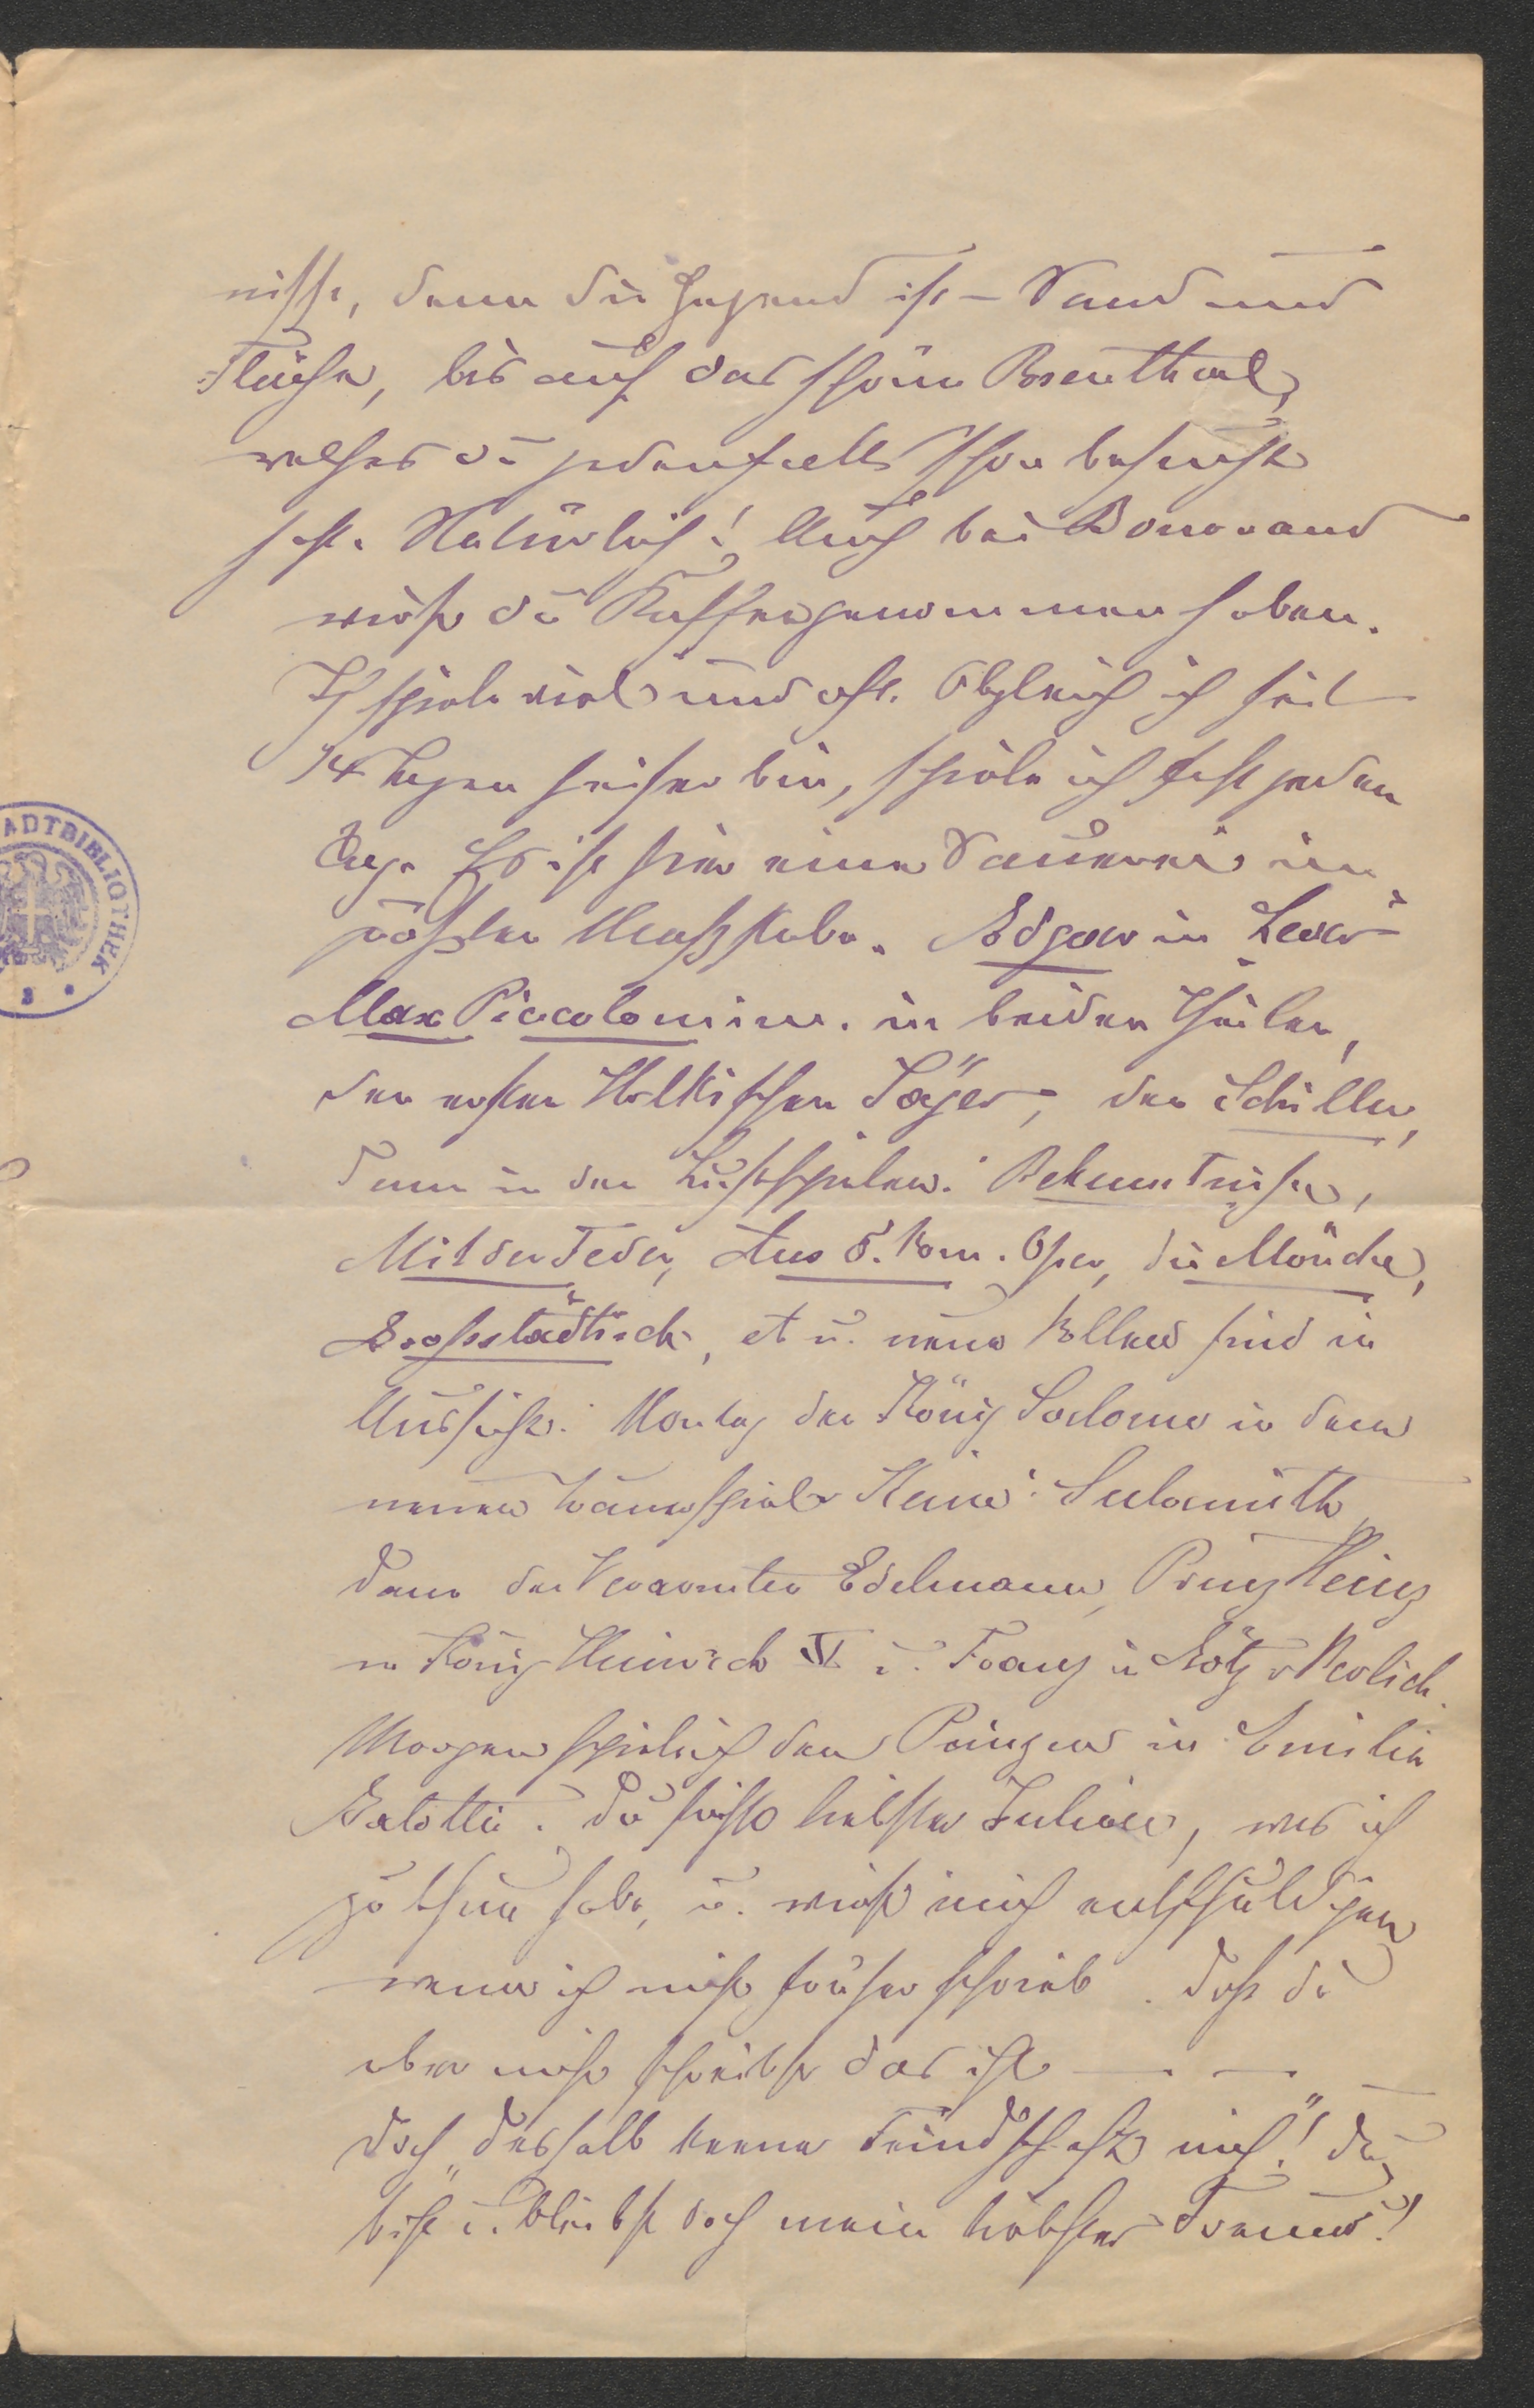 nisse, denn die Gegend ist – Sand und
Fläche, bis auf das schöne Rosenthal,
welches du jedenfalls schon besucht
hast. Natürlich! Auch bei Bonorand
wirst du Kaffee genommen haben.
Ich spiele viel und oft. Obgleich ich seit
14 Tagen heiser bin, spiele ich fast jeden
Tag. Es ist hier eine Sauerei im
größten Maßstabe. Edgar in Lear
Max Piccolomini. in beiden Theilen,
den ersten Holkischen Jäger, den Schüller,
dann in den Lustspielen: Bekenntnisse,
Mit der Feder, Aus d. kom. Oper, die Mönche,
Grossstädtisch, etc. neue Rollen sind in
Aussicht: Montag der König Salomo in dem
neuen Trauerspiele Sulamith
dann der Verarmte Edelmann, Prinz Heinz
in König Heinrich IV u. Franz in Götz v Berlich.
Morgen spiele ich den Prinzen in Emilia
Galotti. Du siehst liebster Julius, was ich
zu thun habe, u. wirst mich entschuldigen
wenn ich nicht früher schrieb. Daß du
aber nicht schreibst das ist — . — . —
doch „deshalb keene Feindschaft nich"! du
bist u. bleibst doch mein liebster Freund!
ADTBIBLIOTHEK